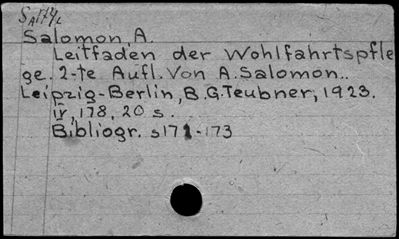 Salomon, A.
Leitfaden der Wohlfahrtspfle
ge. 2-te Aufl. Von A. Salomon..
Leipzig-Berlin, B.G. Teubner, 1923.
IV, 178, 20 s.
Bibliogr. s171-173